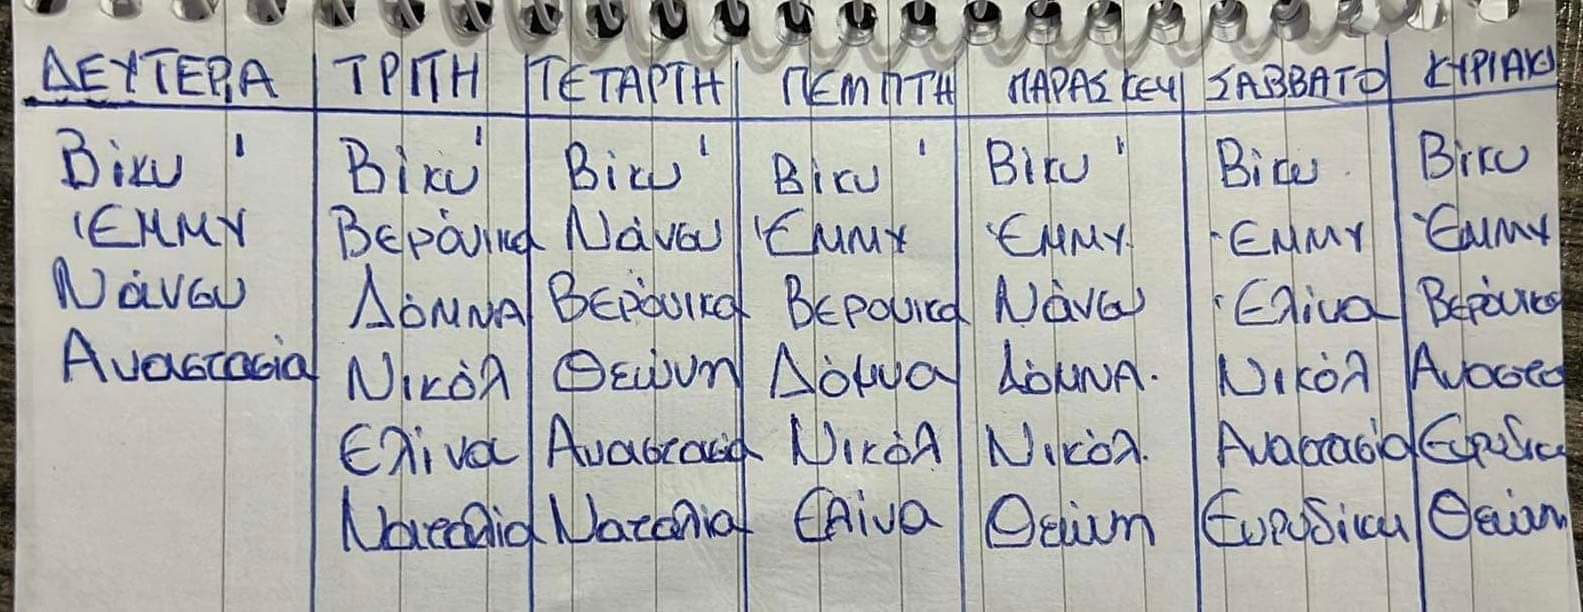 ΔΕΥΤΕΡΑ ΤΡΙΤΗ ΤΕΤΑΡΤΗ ΠΕΜΠΤΗ ΠΑΡΑΣΚΕΥΗ ΣΑΒΒΑΤΟ ΚΥΡΙΑΚΗ
Βίκυ Βίκυ Βίκυ Βίκυ Βίκυ Βίκυ Βίκυ
Έμμυ Βερόνικα Νάνσυ Έμμυ Έμμυ Έμμυ Έμμυ
Νάνσυ ΔΌΜΝΑ Βερόνικα Βερονικα Νάνσυ Ελίνα Βερόνικα
Αναστασία Νικόλ Θεώνη Δόμνα ΔΌΜΝΑ. Νικόλ Αναστα
Ελίνα Αναστασία Νικόλ Νικόλ. Αναστασία Ευρυδικ
Ναταλία Ναταλία Ελίνα Θεώνη Ευρυδίκη Θεώνη